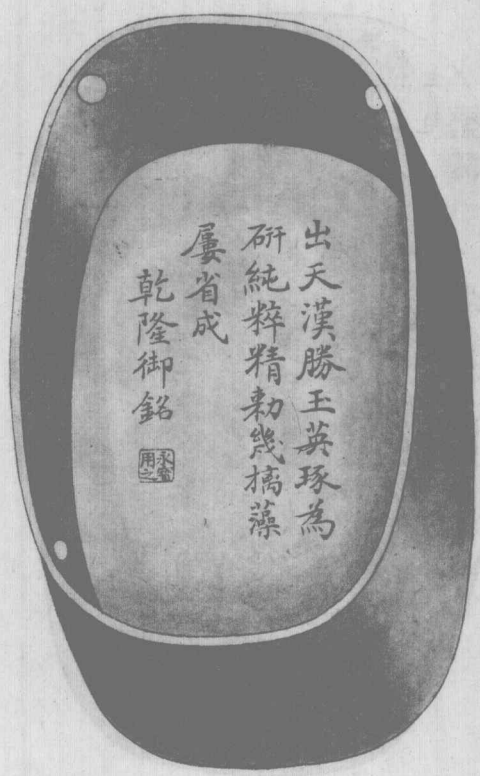 出天漢勝玉英琢為
硏純粹精勅幾摛藻
屢省成
乾隆御銘
永寶用之